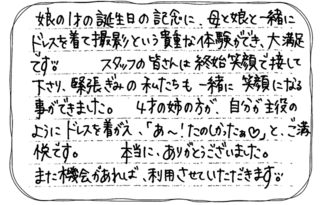 娘の1才の誕生日の記念に、母と娘と一緒に
ドレスを着て撮影という貴重な体験ができ、大満足
です♡　スタッフの皆さんは終始笑顔で接して
下さり、緊張ぎみの私たちも一緒に笑顔になる
事ができました。　4才の姉の方が、自分が主役の
ようにドレスを着がえ、「あ～！たのしかったぁ♡」と、ご満
悦です。　本当に、ありがとうございました。
また機会があれば、利用させていただきます♡